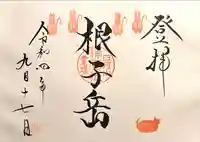 登拝
根子岳
令和四年
九月十七日